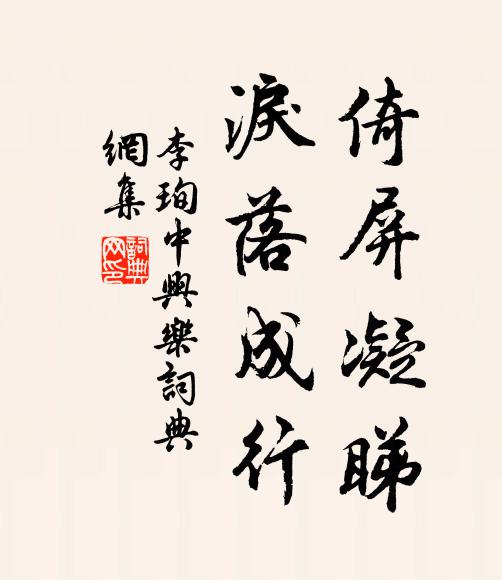 倚屏凝睇
淚落成行
李珣中興樂詞典
網集
詞典
网印